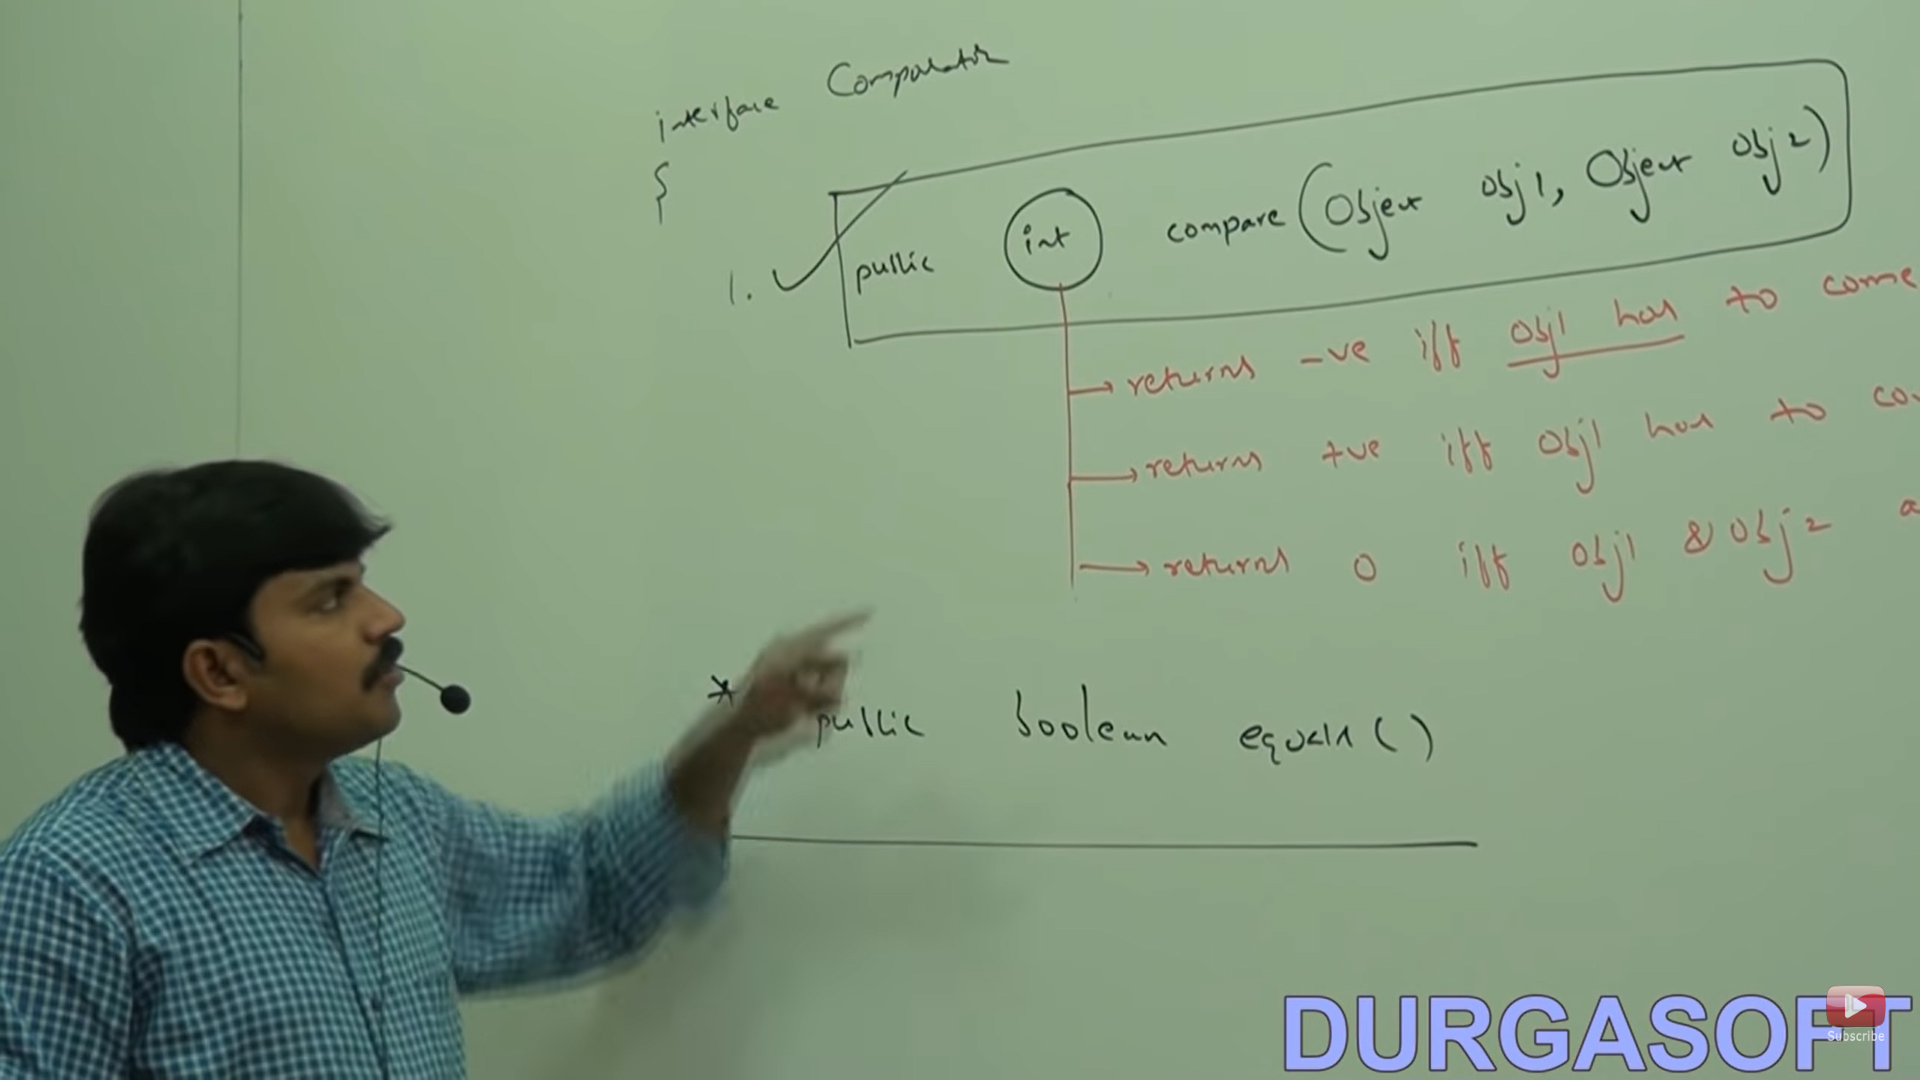 interface Comparator
{
1. public int compare(Object obj1, Object obj2)
returns -ve iff obj1 has to come
returns +ve iff obj1 has to
returns 0 iff obj1 & obj2
* public boolean equals()
DURGASOFT
Subscribe